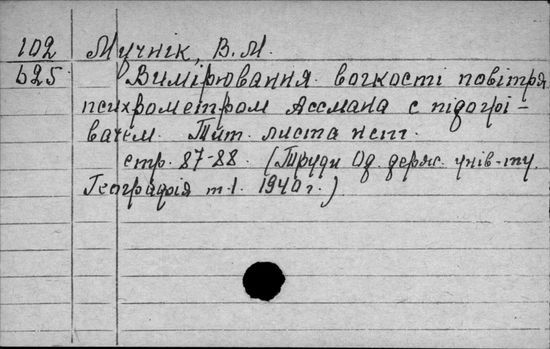 102 Мучнік, В. М.
625 Вимірювання вогкості повітря
психрометром Ассмана с підогрі-
вачем. Тит. листа нет.
стр. 87-88. (Труди Од. держ. унів-ту.
Географія т-1. 1940 г.)